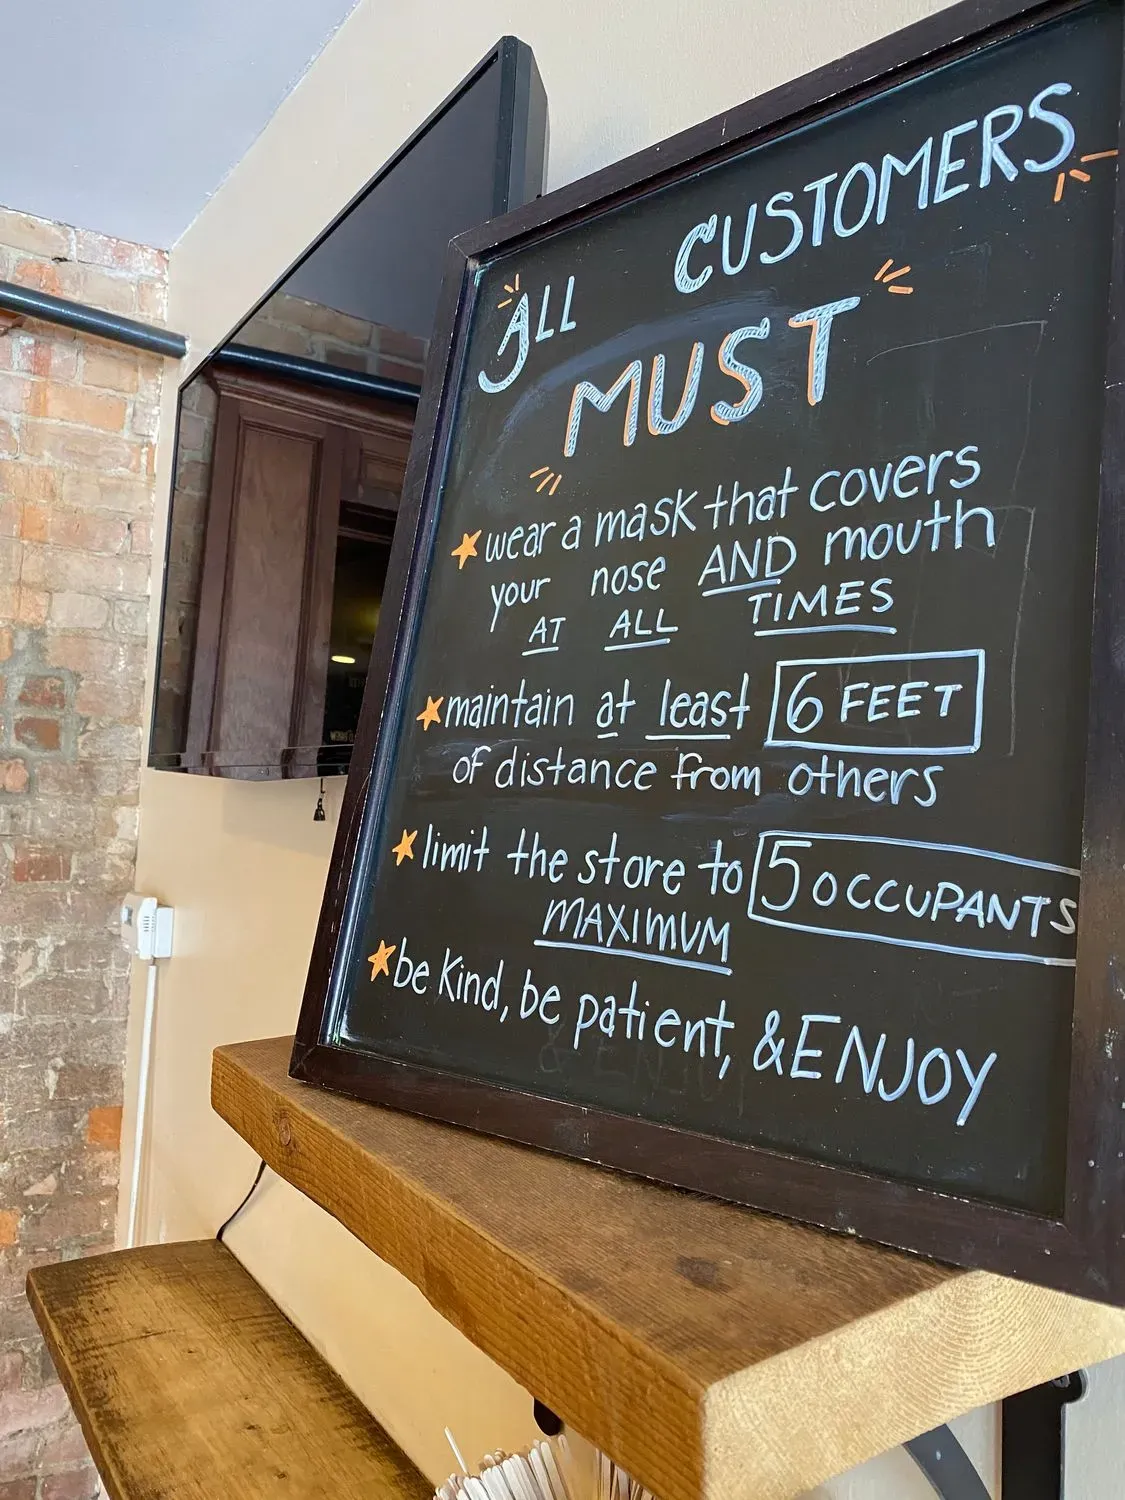 ALL CUSTOMERS
MUST
wear a mask that covers
your nose AND mouth
AT ALL TIMES
maintain at least 6 FEET
of distance from others
limit the store to 5 OCCUPANTS
MAXIMUM
be kind, be patient, & ENJOY